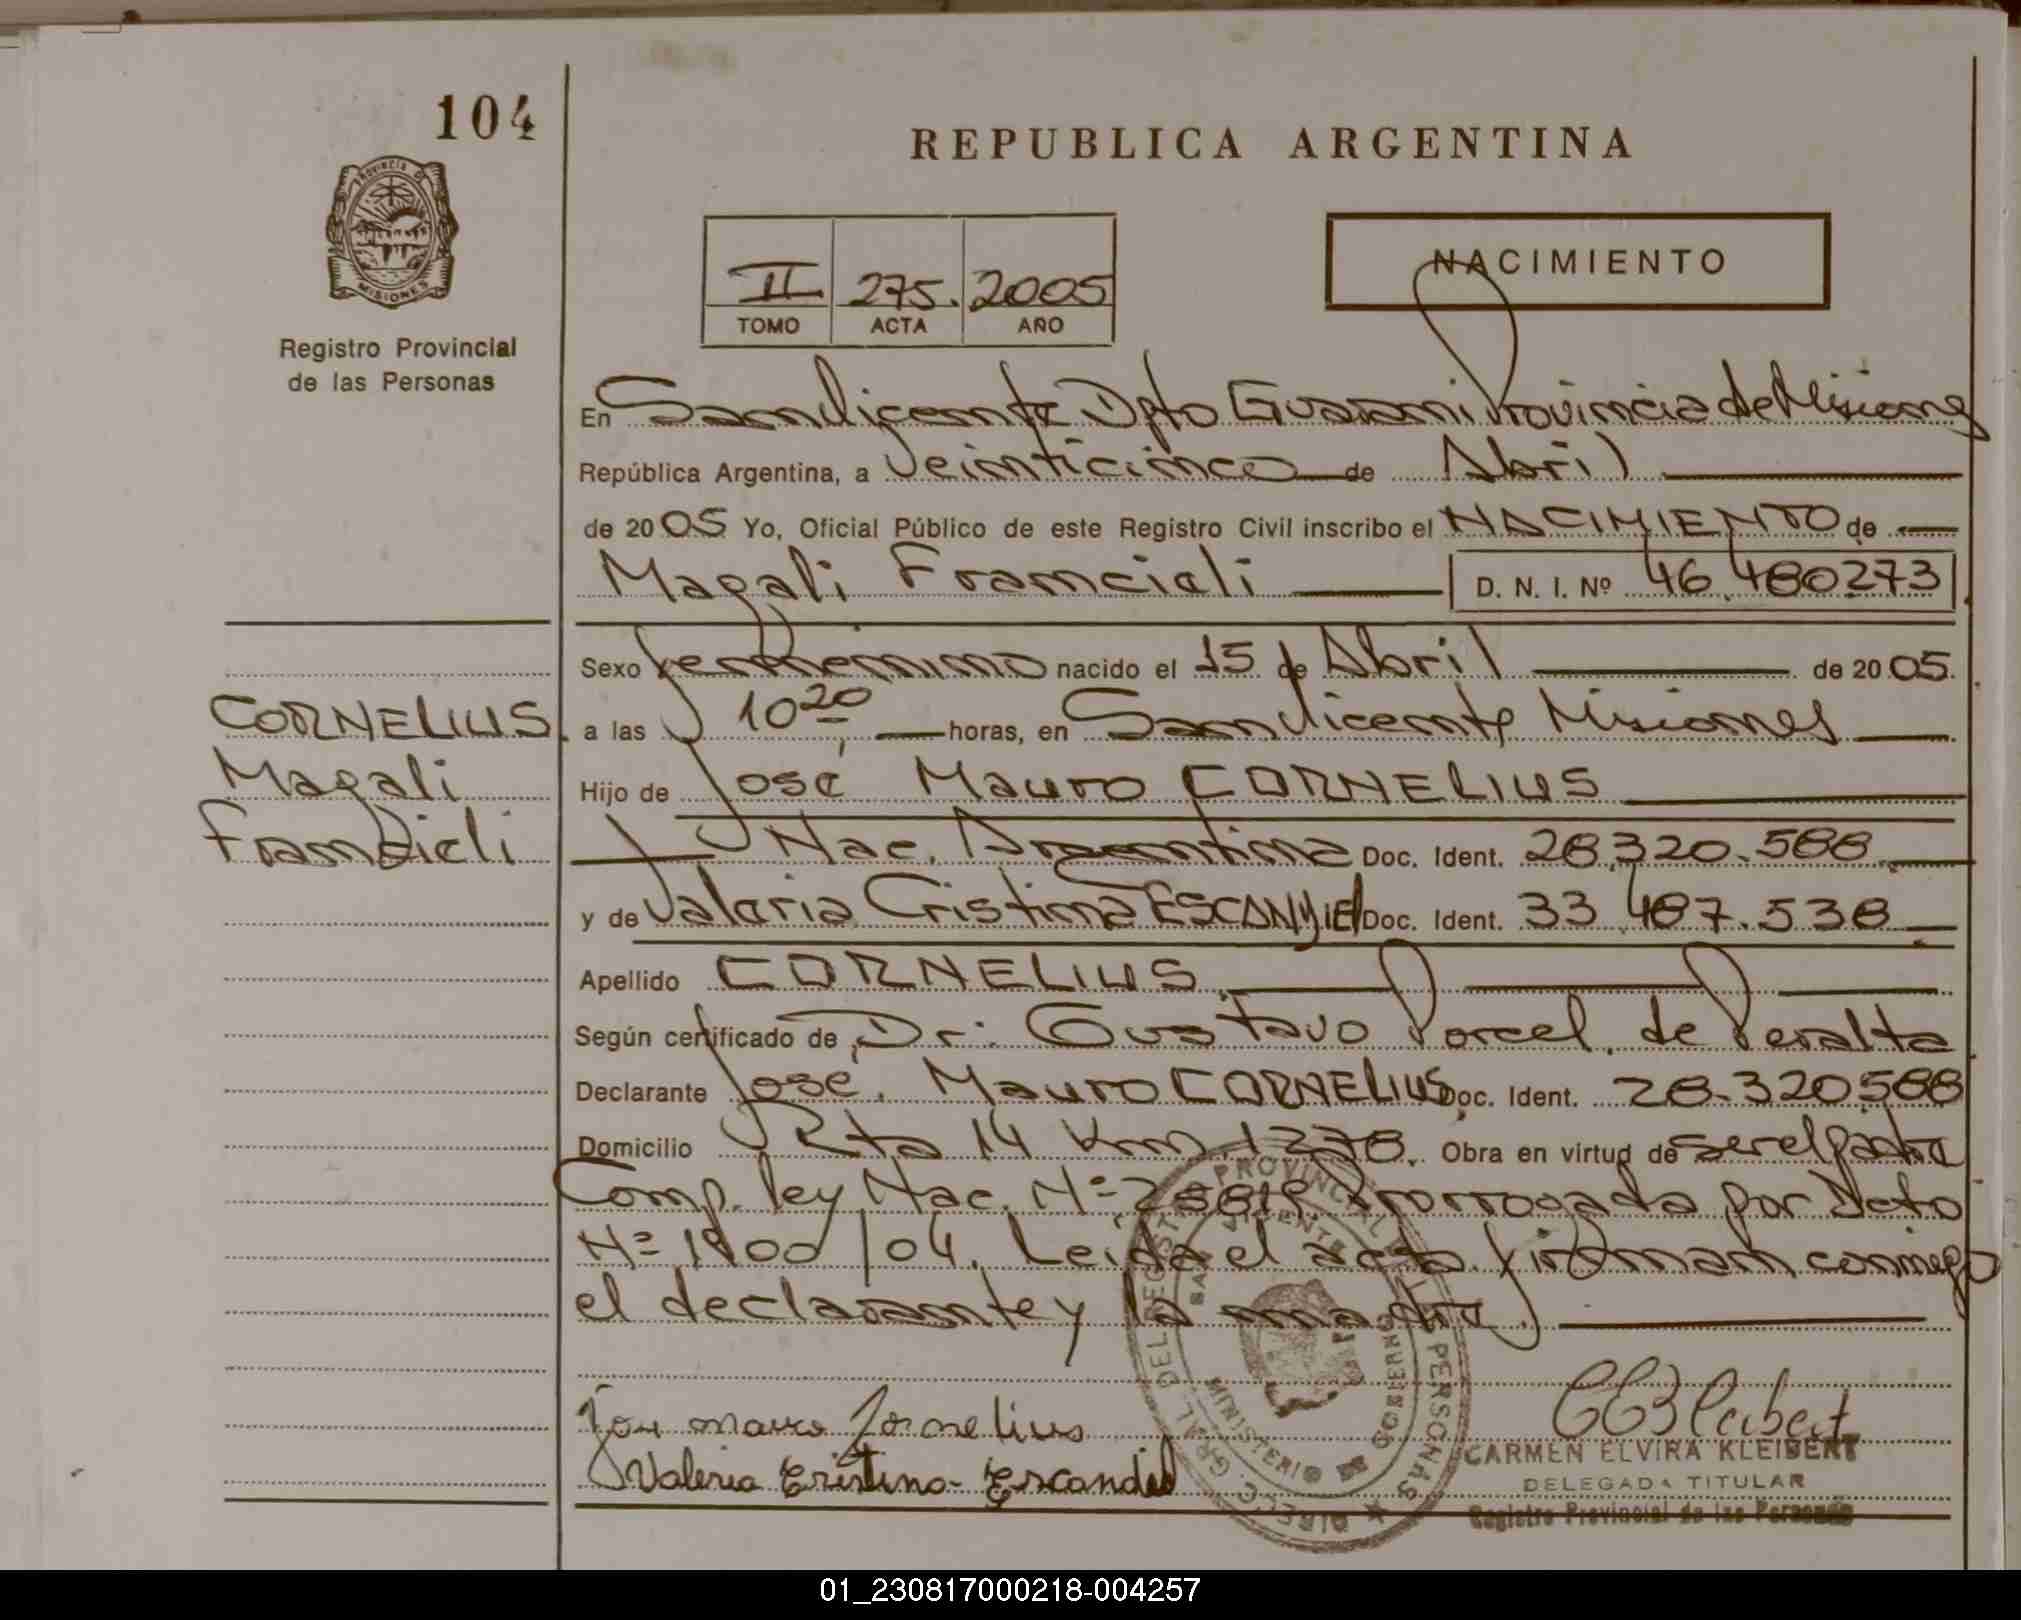 104
PROVINCIA DE
MISIONES
Registro Provincial
de las Personas
REPUBLICA ARGENTINA
II 275. 2005
TOMO ACTA AÑO
NACIMIENTO
En San Vicente Dpto Guarani Provincia de Misiones
República Argentina, a Veinticinco de Abril
de 2005 Yo, Oficial Público de este Registro Civil inscribo el NACIMIENTO de
Magali Francieli D. N. I. Nº 46.480273
Sexo femenino nacido el 15 de Abril de 2005.
a las 10 20 horas, en San Vicente Misiones
Hijo de José Mauro CORNELIUS
Nac. Argentina Doc. Ident. 28.320.588
y de Valeria Cristina Doc. Ident. 33.487.538
Apellido CORNELIUS
Según certificado de Dr. Gustavo Porcel de Peralta
Declarante José Mauro CORNELIUS Doc. Ident. 28.320588
Domicilio Rta 14 Km 1278. Obra en virtud de ser el padre
Comp. ley Nac. Nº Prorrogada por Dcto
Nº 1900/04. Leida el acta firman conmigo
el declarante y la madre.
CORNELIUS
Magali
Francieli
Jose mauro Cornelius
Valeria Cristina Escandiel
DIREC. GRAL DEL REGISTRO PROVINCIAL DE LAS PERSONAS
SAN VICENTE
MINISTERIO DE GOBIERNO
CARMEN ELVIRA KLEIBERT
DELEGADA TITULAR
Registro Provincial de las Personas
01_230817000218-004257